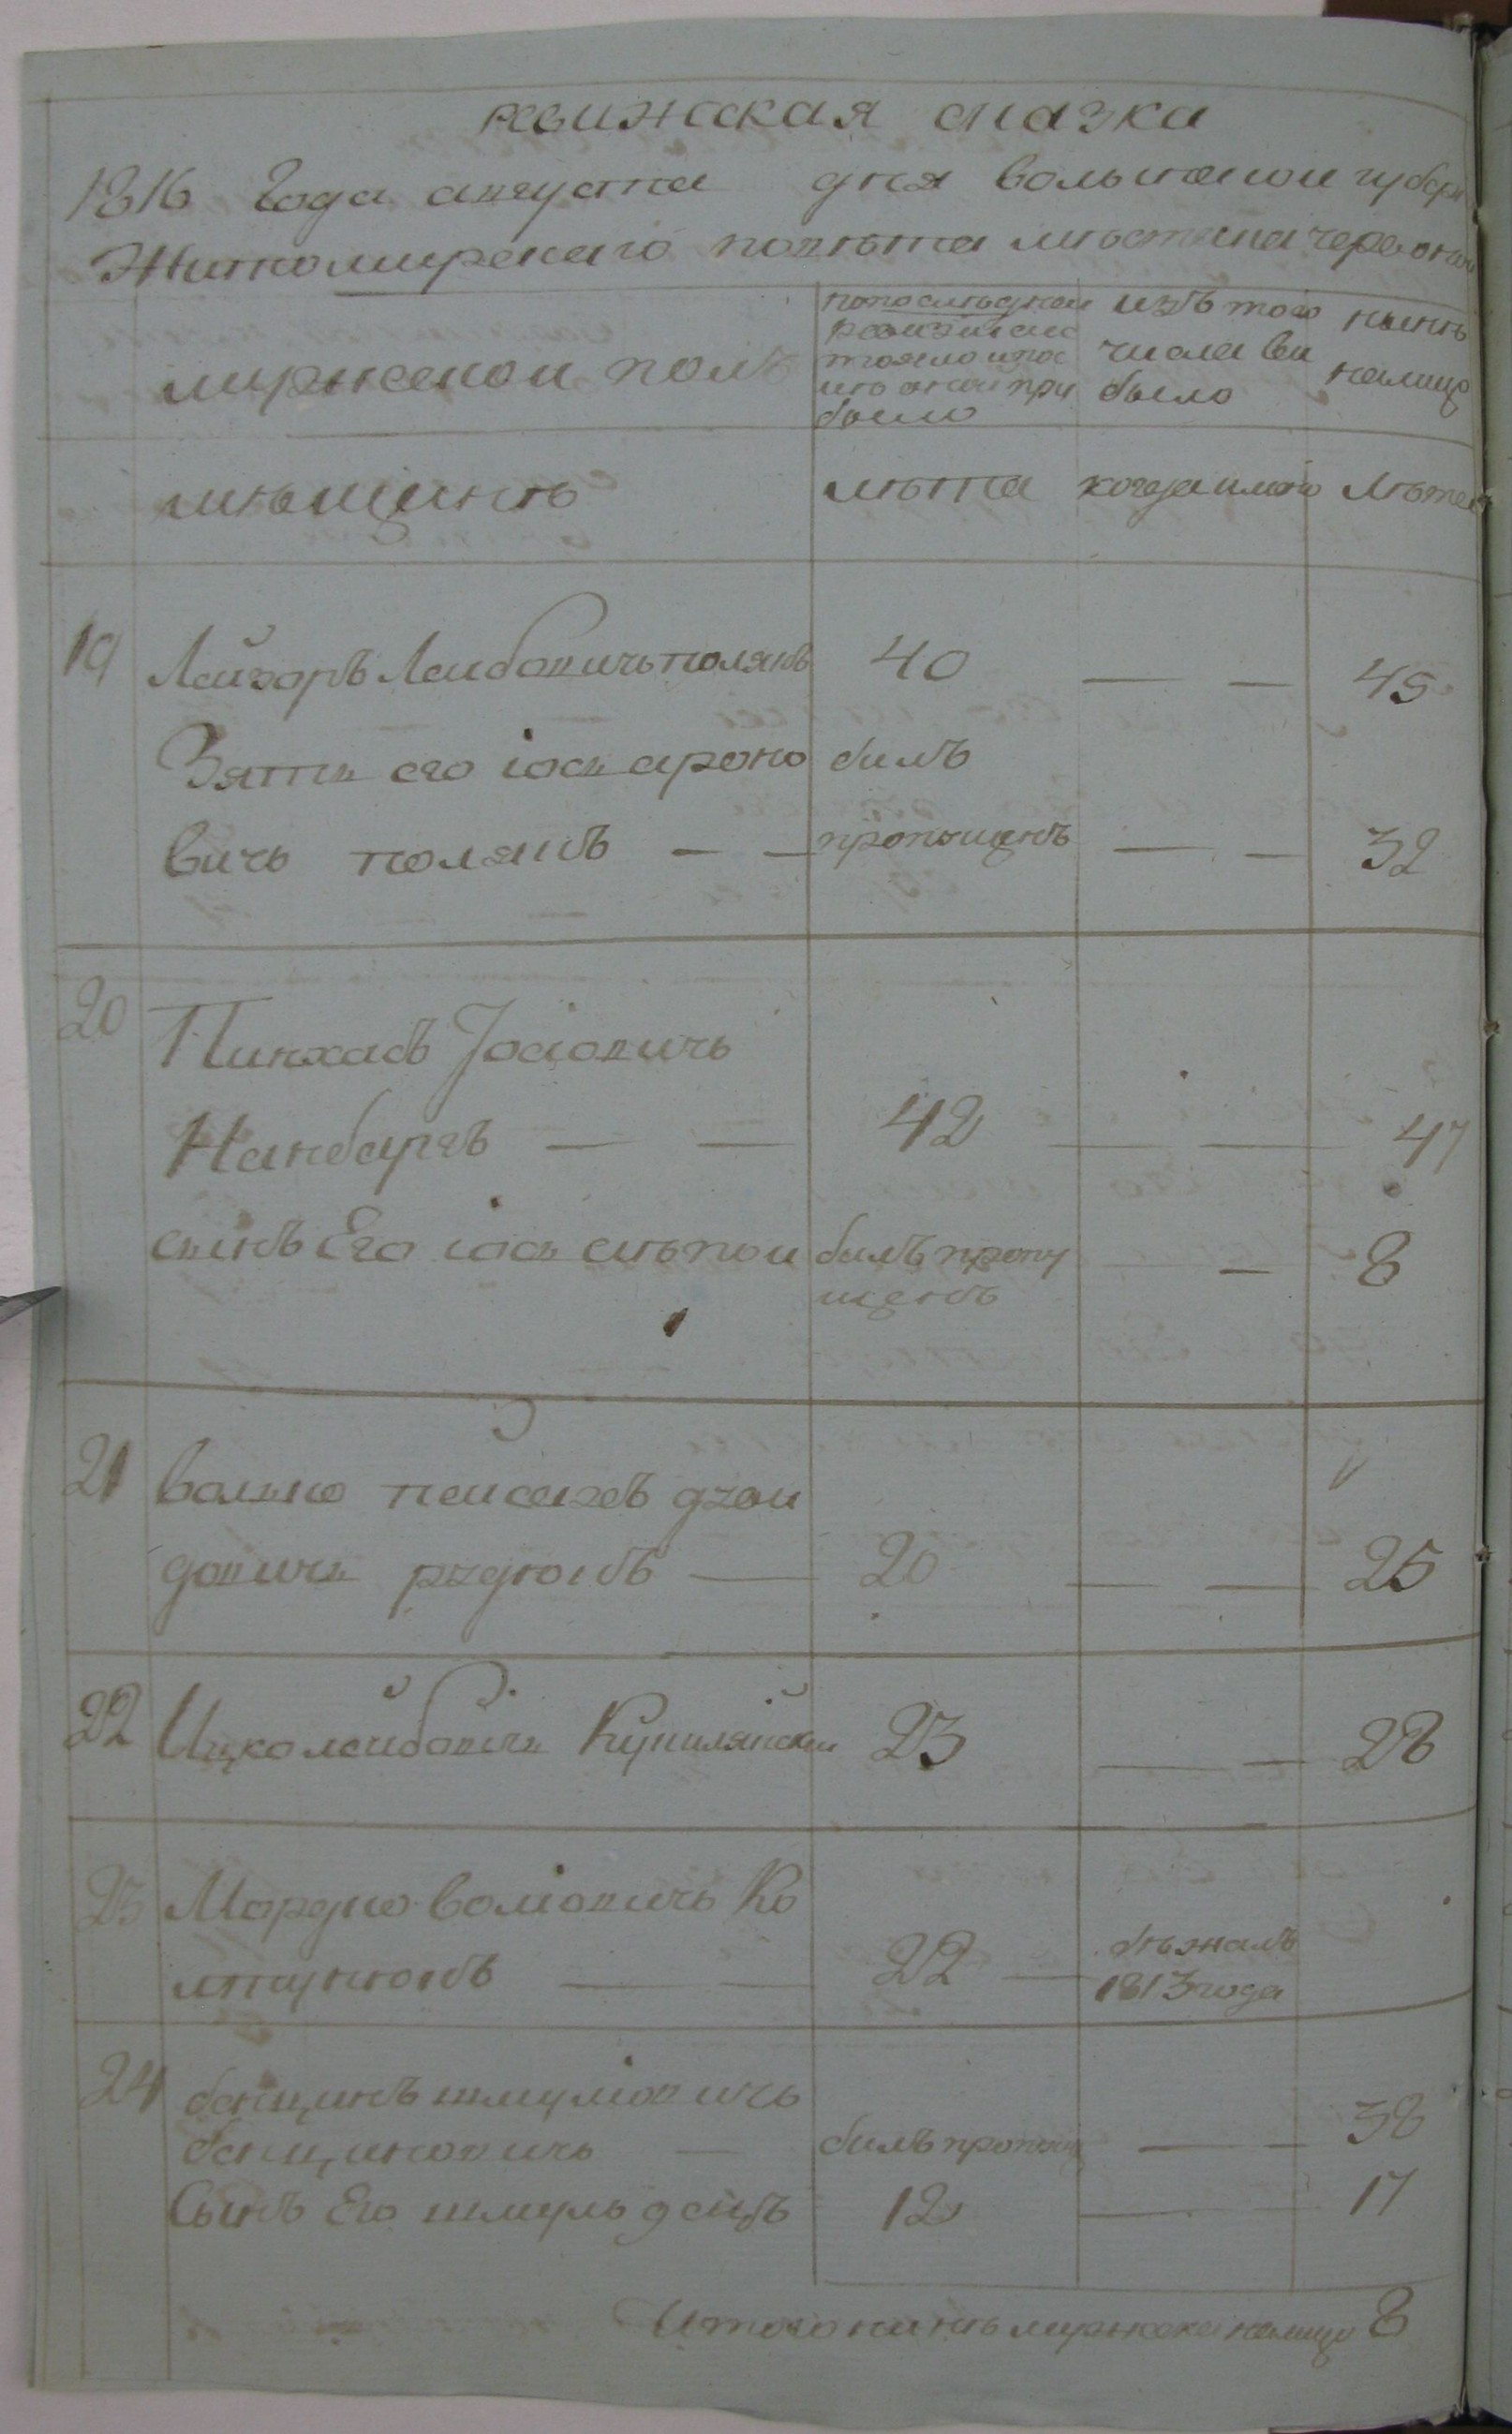 ревижская сказка
1816 Года августа дня волынской губерн
Житомирскаго повѣта мѣстечка червоно
мужескои полъ
по последнеи ревизии состояло и после онои при было
изъ того числа вы было
нынѣ налицо
мѣщинѣ
лѣта
когда имено
Лѣта
19 Лейзоръ Леибовичь полякъ 40 — — 45
Зять его іось ароно билъ
вичь полякъ — — пропощенъ — — 32
20 Пинхасъ Іосіовичь
Нанбаргъ — — 42 — — 47
синъ Его іось слѣпои билъ пропу — 8
щенъ
21 волко пеисахъ дзои
довичь — 20 — — 25
22 Ицко леибовичь 23 — — 28
23 Мордко волювичь Ко
лтуновъ — — 22 — бѣжалъ
1813 года
24 бенционъ шмулювичь
бенционовичь — билъ пропощ — — 38
Сынъ Его шмуль 12 — 17
Итого нинѣ мужеска налицо 8